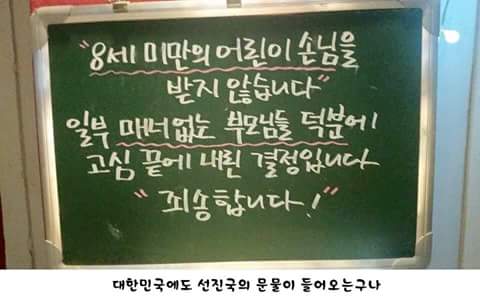 "8세 미만의 어린이 손님을
받지 않습니다"
일부 매너없는 부모님들 덕분에
고심 끝에 내린 결정입니다
"죄송합니다!"
대한민국에도 선진국의 문물이 들어오는구나